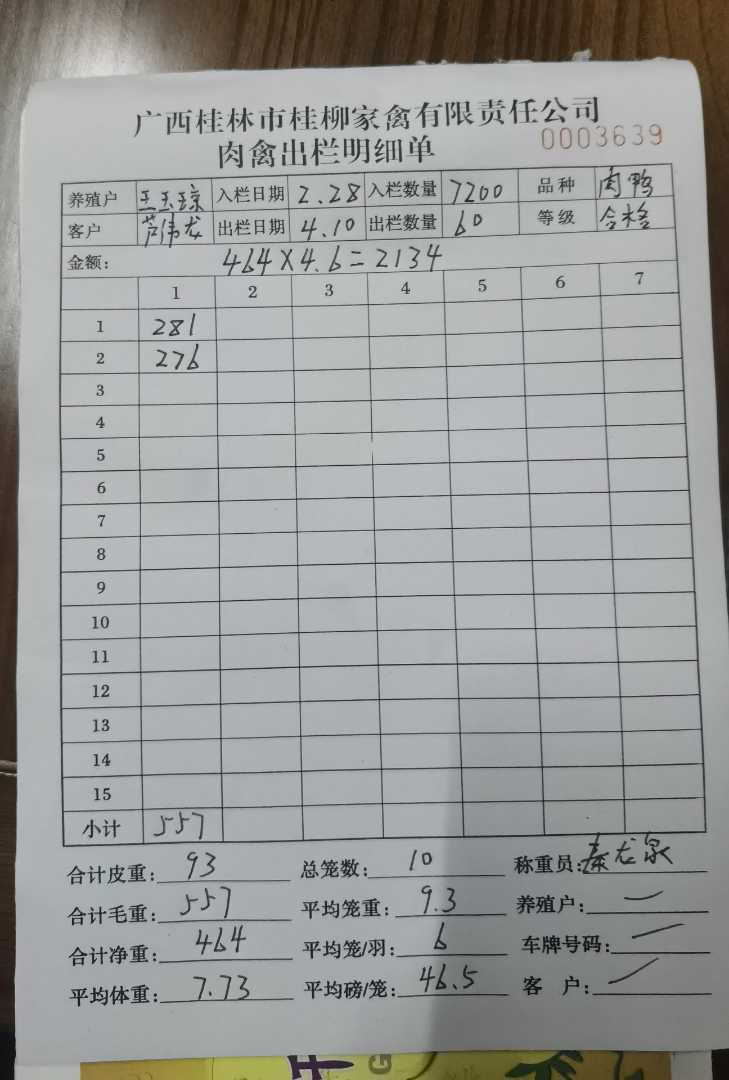 广西桂林市桂柳家禽有限责任公司
肉禽出栏明细单 0003639
养殖户 王玉琼 入栏日期 2.28 入栏数量 7200 品种 肉鸭
客户 芦伟龙 出栏日期 4.10 出栏数量 60 等级 合格
金额: 464×4.6=2134
1 2 3 4 5 6 7
1 281
2 276
3
4
5
6
7
8
9
10
11
12
13
14
15
小计 557
合计皮重: 93 总笼数: 10 称重员: 秦龙泉
合计毛重: 557 平均笼重: 9.3 养殖户:
合计净重: 464 平均笼/羽: 6 车牌号码:
平均体重: 7.73 平均磅/笼: 46.5 客 户:
G